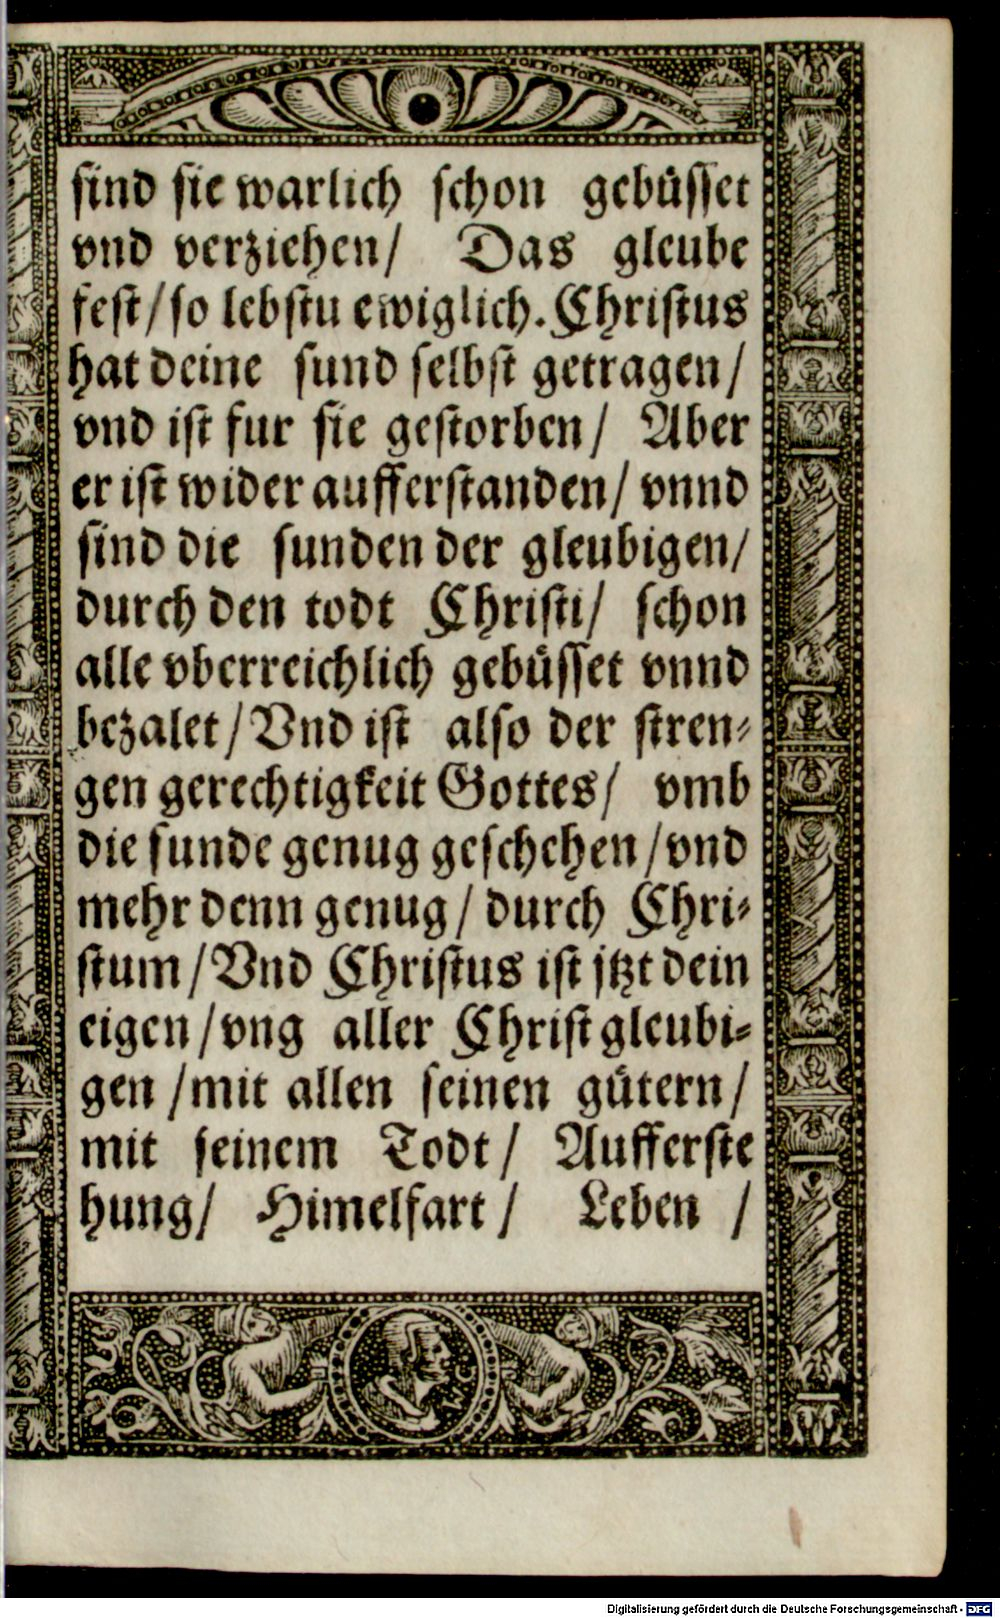 sind sie warlich schon gebüsset
vnd verziehen/ Das gleube
fest/so lebstu ewiglich. Christus
hat deine sund selbst getragen/
vnd ist fur sie gestorben/ Aber
er ist wider aufferstanden/ vnnd
sind die sunden der gleubigen/
durch den todt Christi/ schon
alle vberreichlich gebüsset vnnd
bezalet/ Vnd ist also der stren-
gen gerechtigkeit Gottes/ vmb
die sunde genug geschehen/vnd
mehr denn genug/ durch Chri-
stum/ Vnd Christus ist jtzt dein
eigen/vng aller Christgleubi-
gen/mit allen seinen gütern/
mit seinem Todt/ Aufferste
hung/ Himelfart/ Leben /
Digitalisierung gefördert durch die Deutsche Forschungsgemeinschaft - DFG